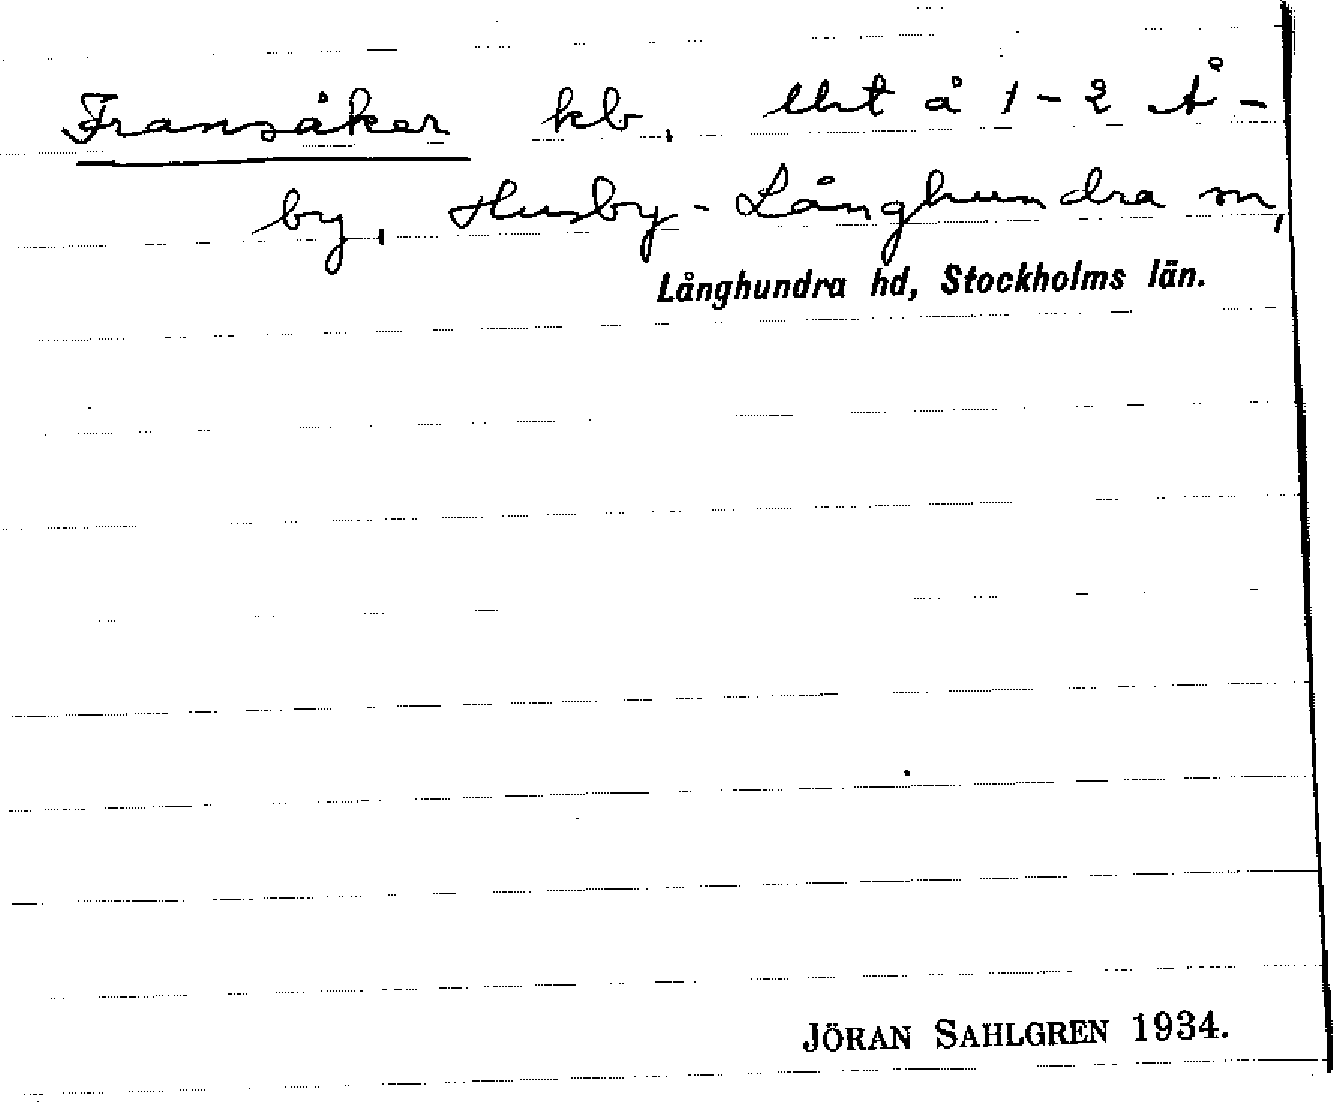 Fransåker kb. Uht å 1-2 Å-
by, Husby-Långhundra sn,
Långhundra hd, Stockholms län.
JÖRAN SAHLGREN 1934.